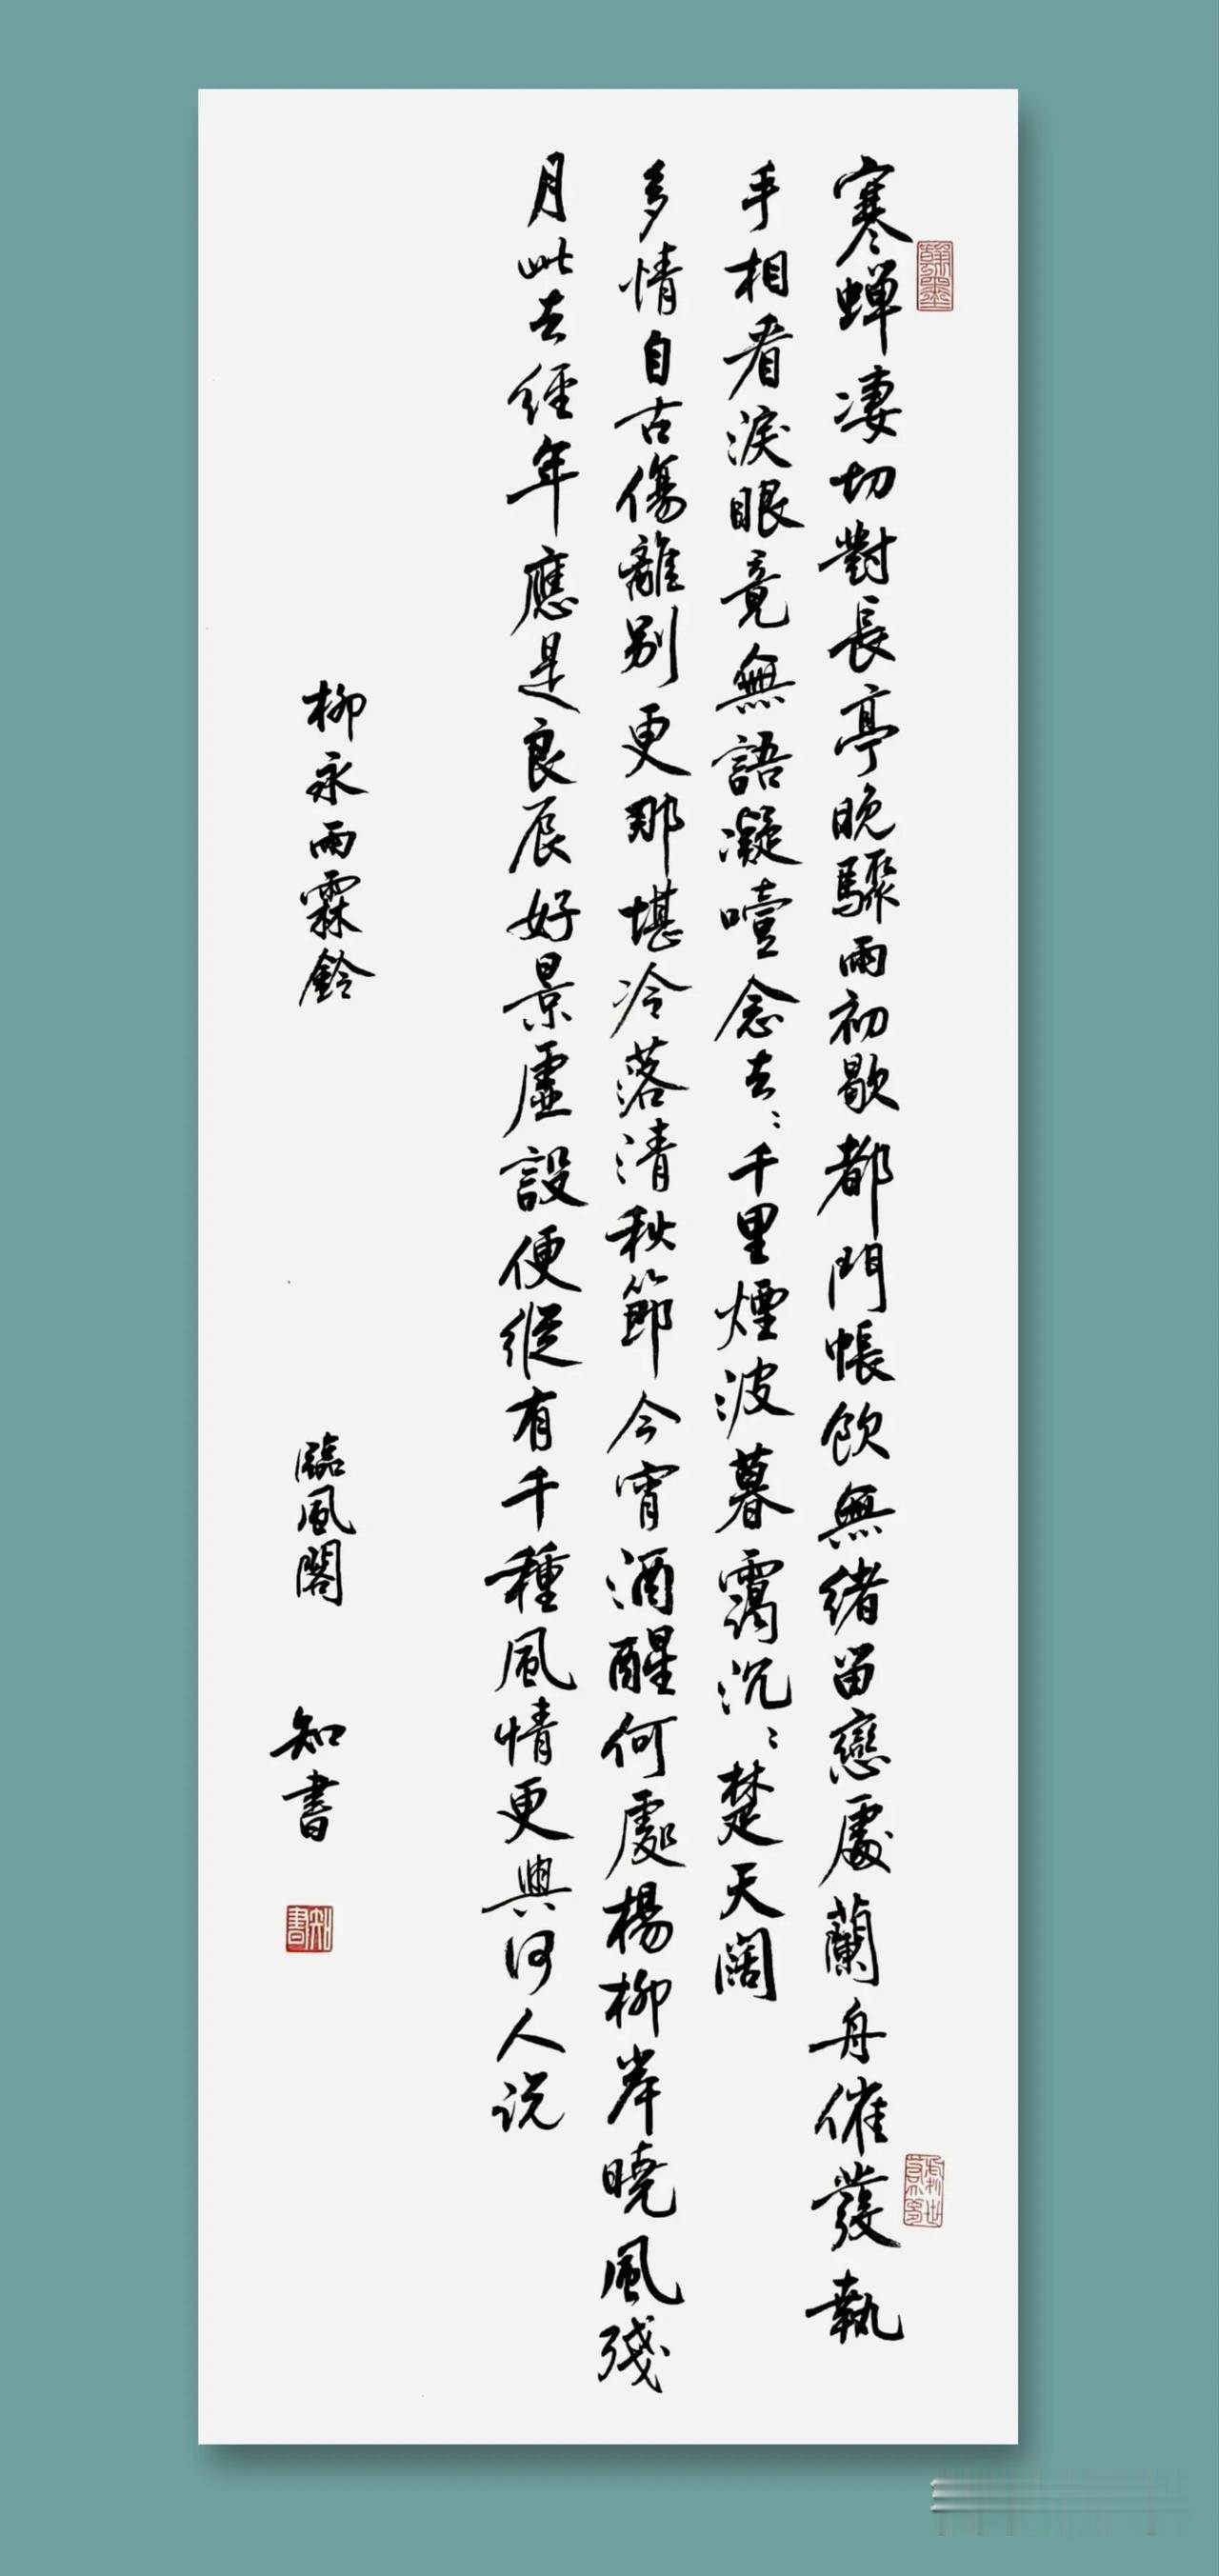 寒蝉凄切對長亭晚驟雨初歇都門帳飲無緒留戀處蘭舟催發執
手相看淚眼竟無語凝噎念去〻千里煙波暮靄沉〻楚天闊
多情自古傷離別更那堪冷落清秋節今宵酒醒何處楊柳岸曉風殘
月此去經年應是良辰好景虛設便縱有千種風情更與何人説
柳永雨霖鈴 臨風閣 知書
翰墨
知書